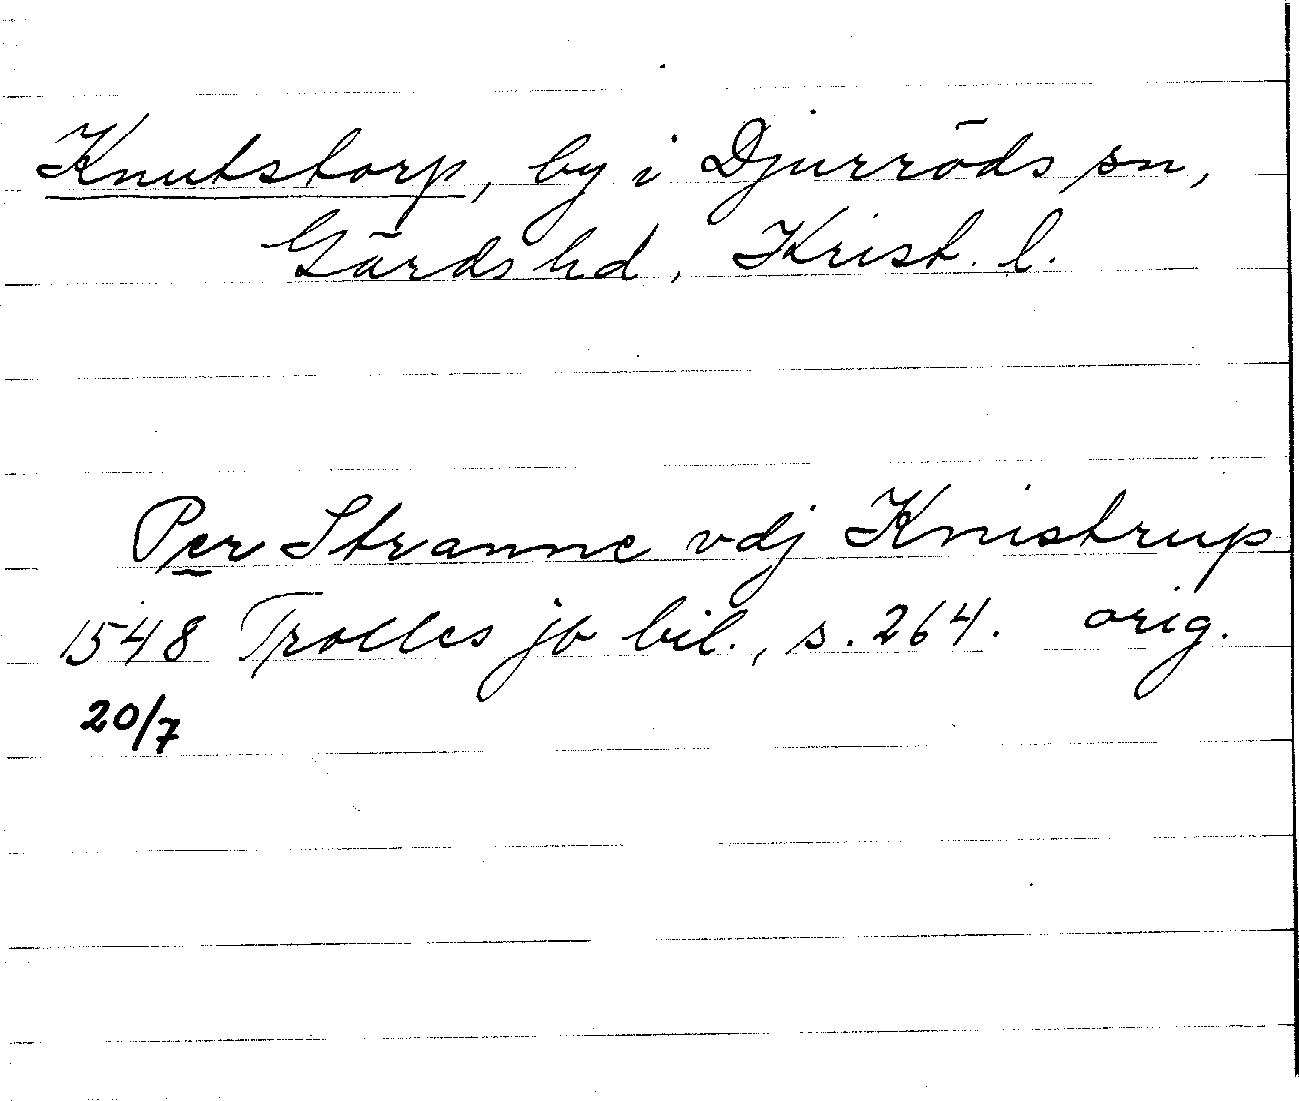 Knutstorp, by i Djurröds sn,
Gärds hd, Krist. l.
Per Stranne vdj Knistrup
1548 Trolles jb bil., s. 264. orig.
20/7